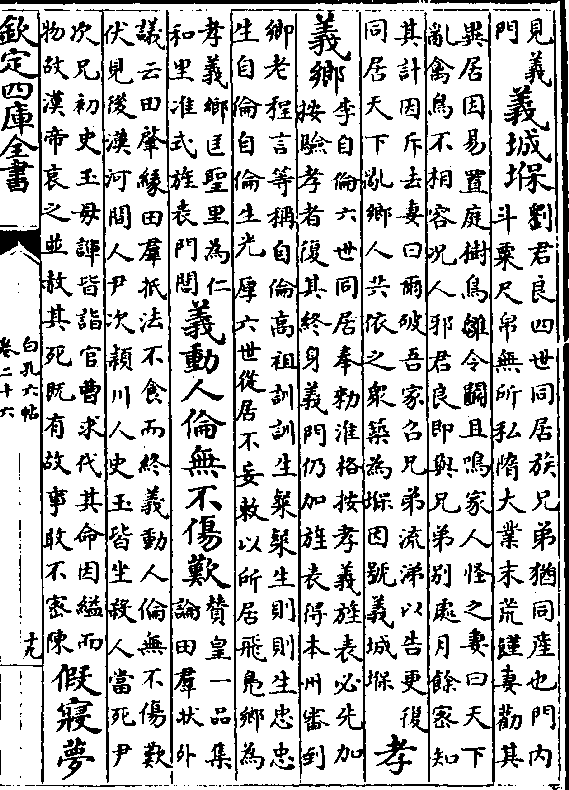 見義
門
義城堡
劉君良四世同居族兄弟猶同産也門内
斗粟尺帛無所私隋大業末荒饉妻勸其
異居因易置庭樹鳥雛令鬬且鳴家人怪之妻曰天下
亂禽鳥不相容况人邪君良即與兄弟别處月餘宻知
其計因斥去妻曰爾破吾家召兄弟流涕以告更復
同居天下亂鄉人共依之衆築為堡因號義城堡
孝
義鄉
李自倫六世同居奉勅准格按孝義旌表必先加
按驗孝者復其終身義門仍加旌表得本州審到
鄉老程言等稱自倫高祖訓訓生粲粲生則則生忠忠
生自倫自倫生光厚六世從居不妄敕以所居飛鳬鄉為
孝義鄉匡聖里為仁
和里准式旌表門閭
義動人倫無不傷歎
賛皇一品集
論田羣狀外
議云田肇緣田羣抵法不食而終義動人倫無不傷歎
伏見後漢河間人尹次潁川人史玉皆坐殺人當死尹
次兄初史玉母諢皆詣官曹求代其命因縊而
物故漢帝哀之並赦其死既有故事敢不宻陳
假寢夢
欽定四庫全書
白孔六帖
卷二十六
十九